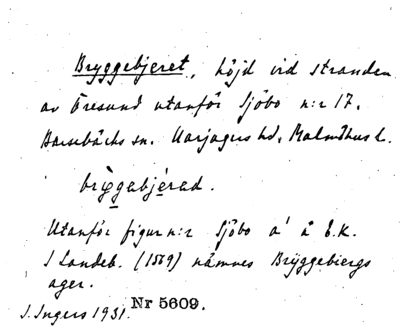 Bryggebjeret, höjd vid stranden
av Öresund utanför Sjöbo n:r 17,
Barsebäcks sn. Harjagers hd, Malmöhus l.
bryggabjérad.
Utanför figur n:r Sjöbo å E.K.
I Landeb. (1569) nämnes Bryggebiergs
ager.
I. Ingers 1931. Nr 5609.